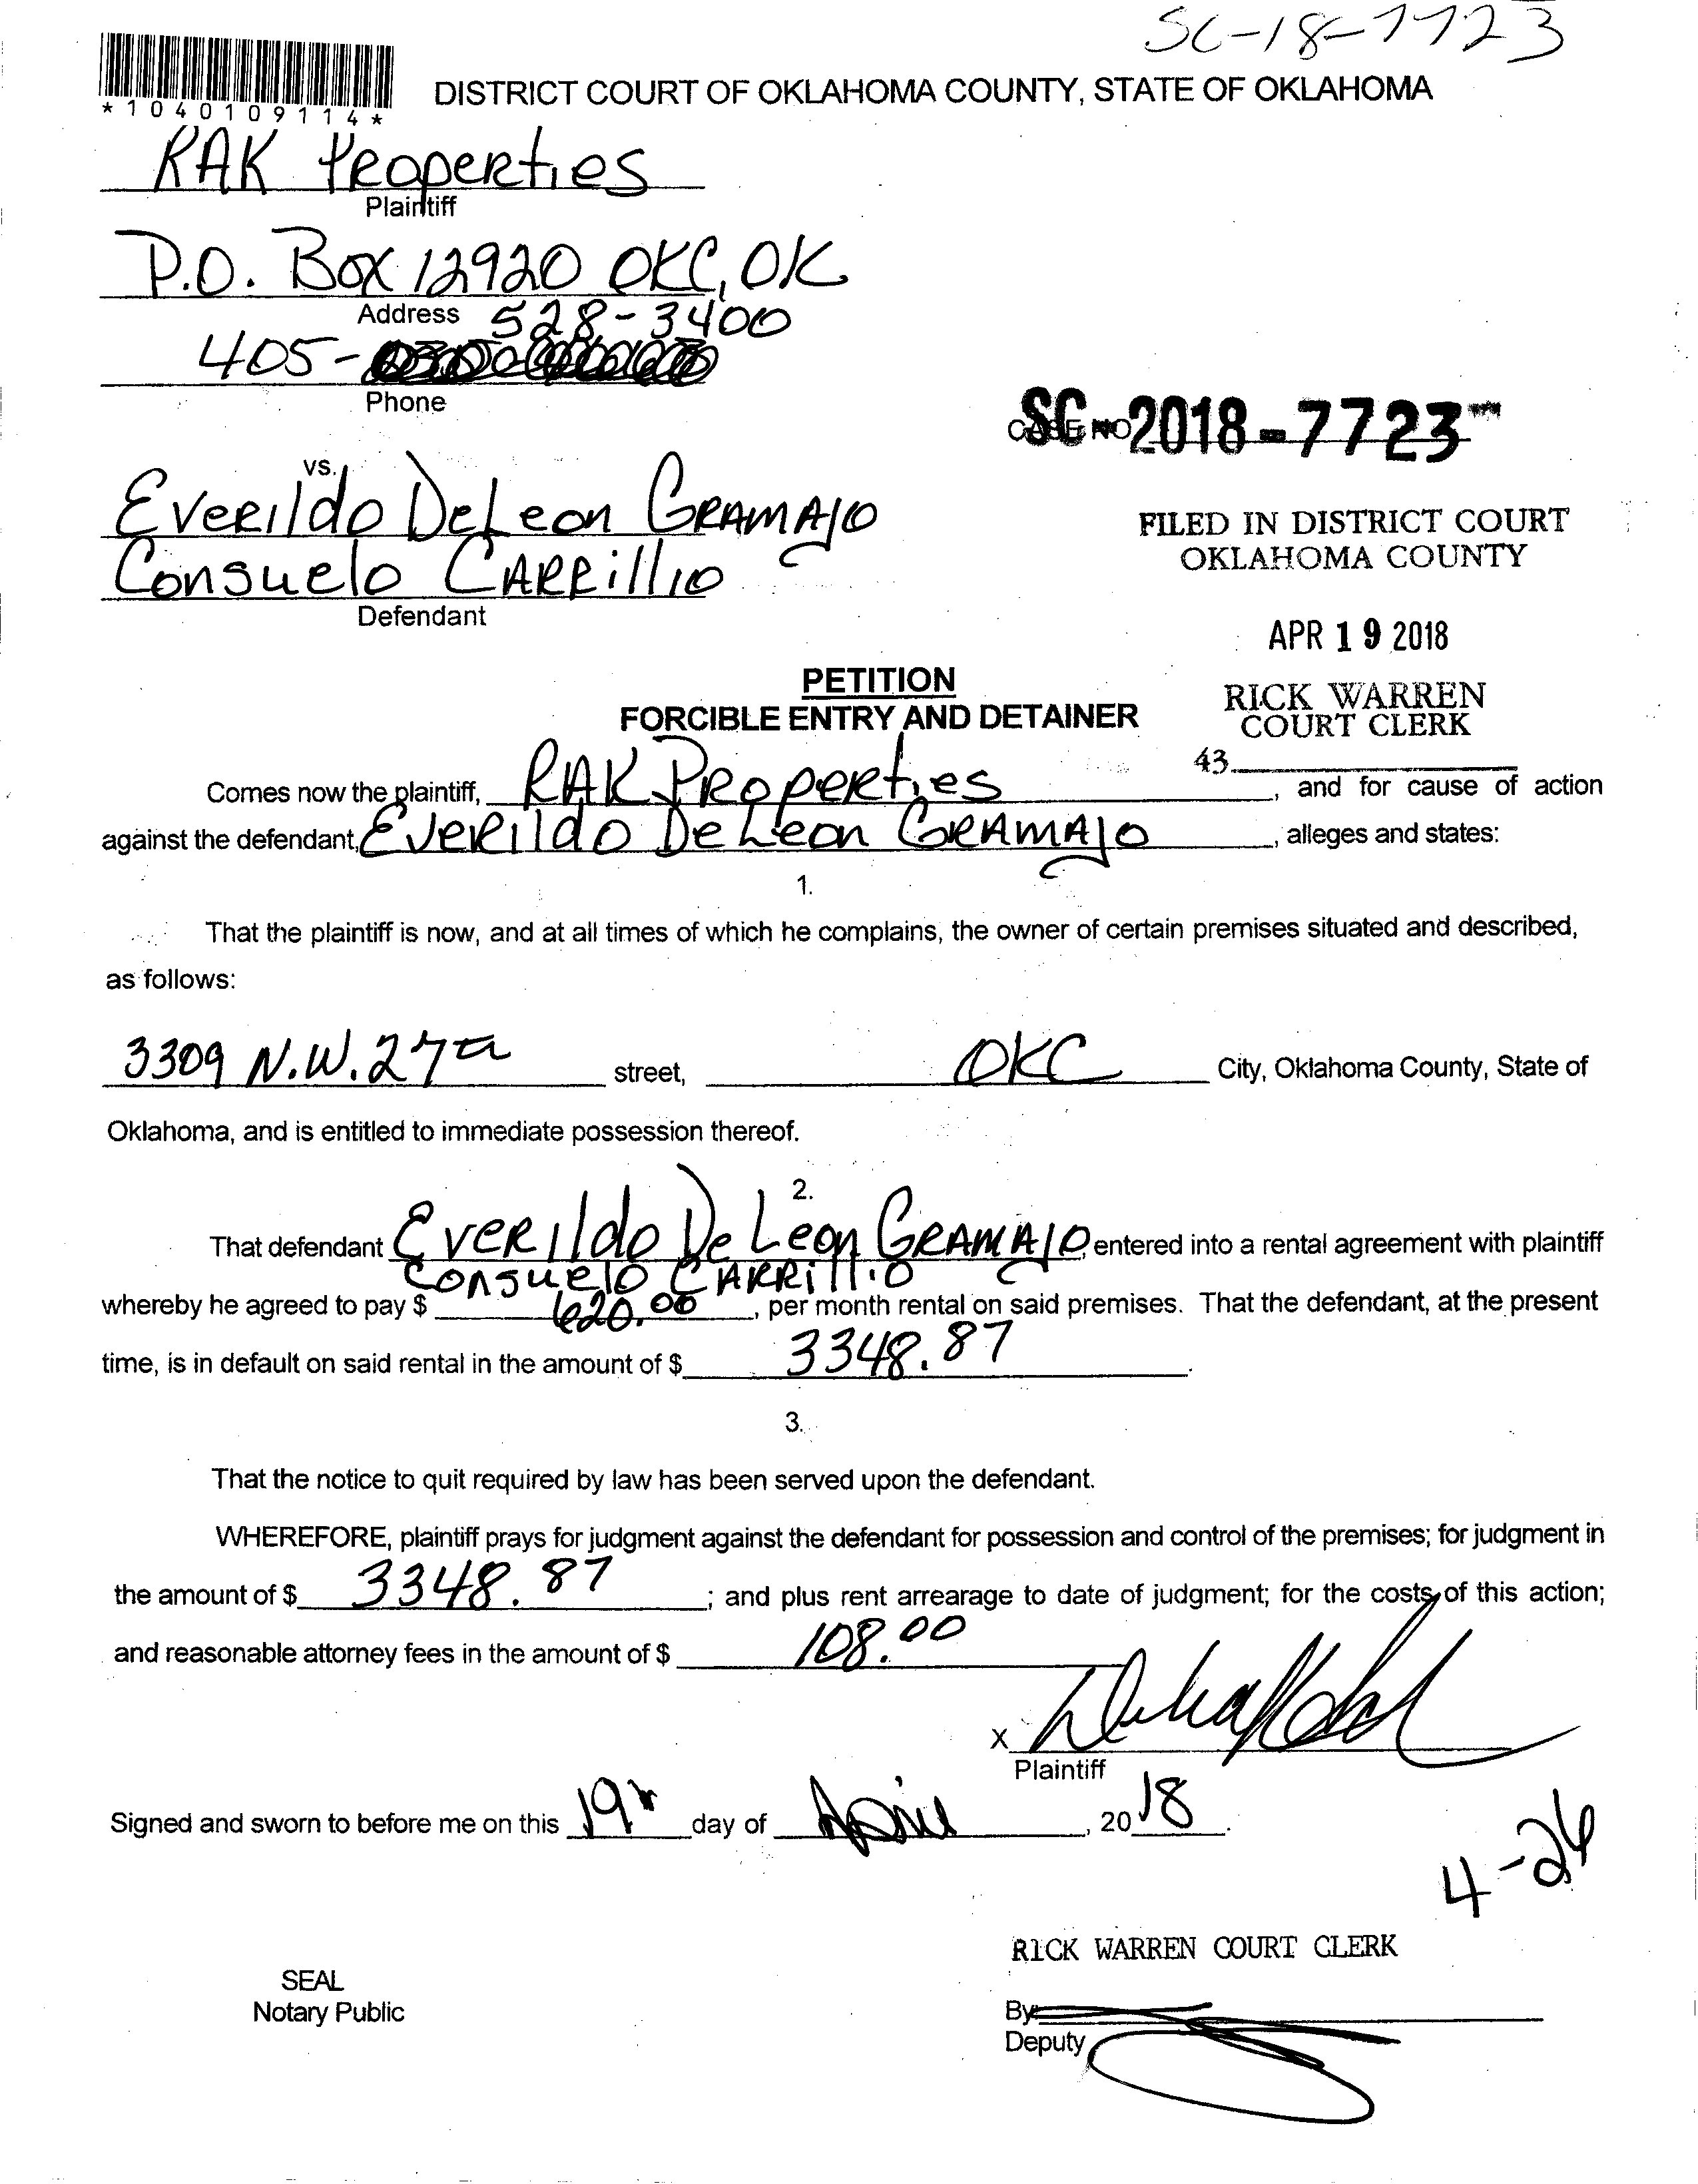 SC-18-7723
*1040109114*
DISTRICT COURT OF OKLAHOMA COUNTY, STATE OF OKLAHOMA
RAK Properties
Plaintiff
P.O. Box 12920 OKC, OK
Address
528-3400
405-
Phone
CASE NO
SC-2018-7723
vs.
Everildo DeLeon Gramajo
Consuelo Carrillio
Defendant
FILED IN DISTRICT COURT
OKLAHOMA COUNTY
APR 19 2018
RICK WARREN
COURT CLERK
43
PETITION
FORCIBLE ENTRY AND DETAINER
Comes now the plaintiff, RAK Properties, and for cause of action
against the defendant, Everildo DeLeon Gramajo, alleges and states:
1.
That the plaintiff is now, and at all times of which he complains, the owner of certain premises situated and described,
as follows:
3309 N.W. 27th street, OKC City, Oklahoma County, State of
Oklahoma, and is entitled to immediate possession thereof.
2.
That defendant Everildo DeLeon Gramajo, entered into a rental agreement with plaintiff
Consuelo Carrillio
whereby he agreed to pay $ 620.00, per month rental on said premises. That the defendant, at the present
time, is in default on said rental in the amount of $ 3348.87.
3.
That the notice to quit required by law has been served upon the defendant.
WHEREFORE, plaintiff prays for judgment against the defendant for possession and control of the premises; for judgment in
the amount of $ 3348.87; and plus rent arrearage to date of judgment; for the costs of this action;
and reasonable attorney fees in the amount of $ 108.00
X
Plaintiff
Signed and sworn to before me on this 19th day of April, 2018.
4-26
RICK WARREN COURT CLERK
SEAL
Notary Public
By
Deputy